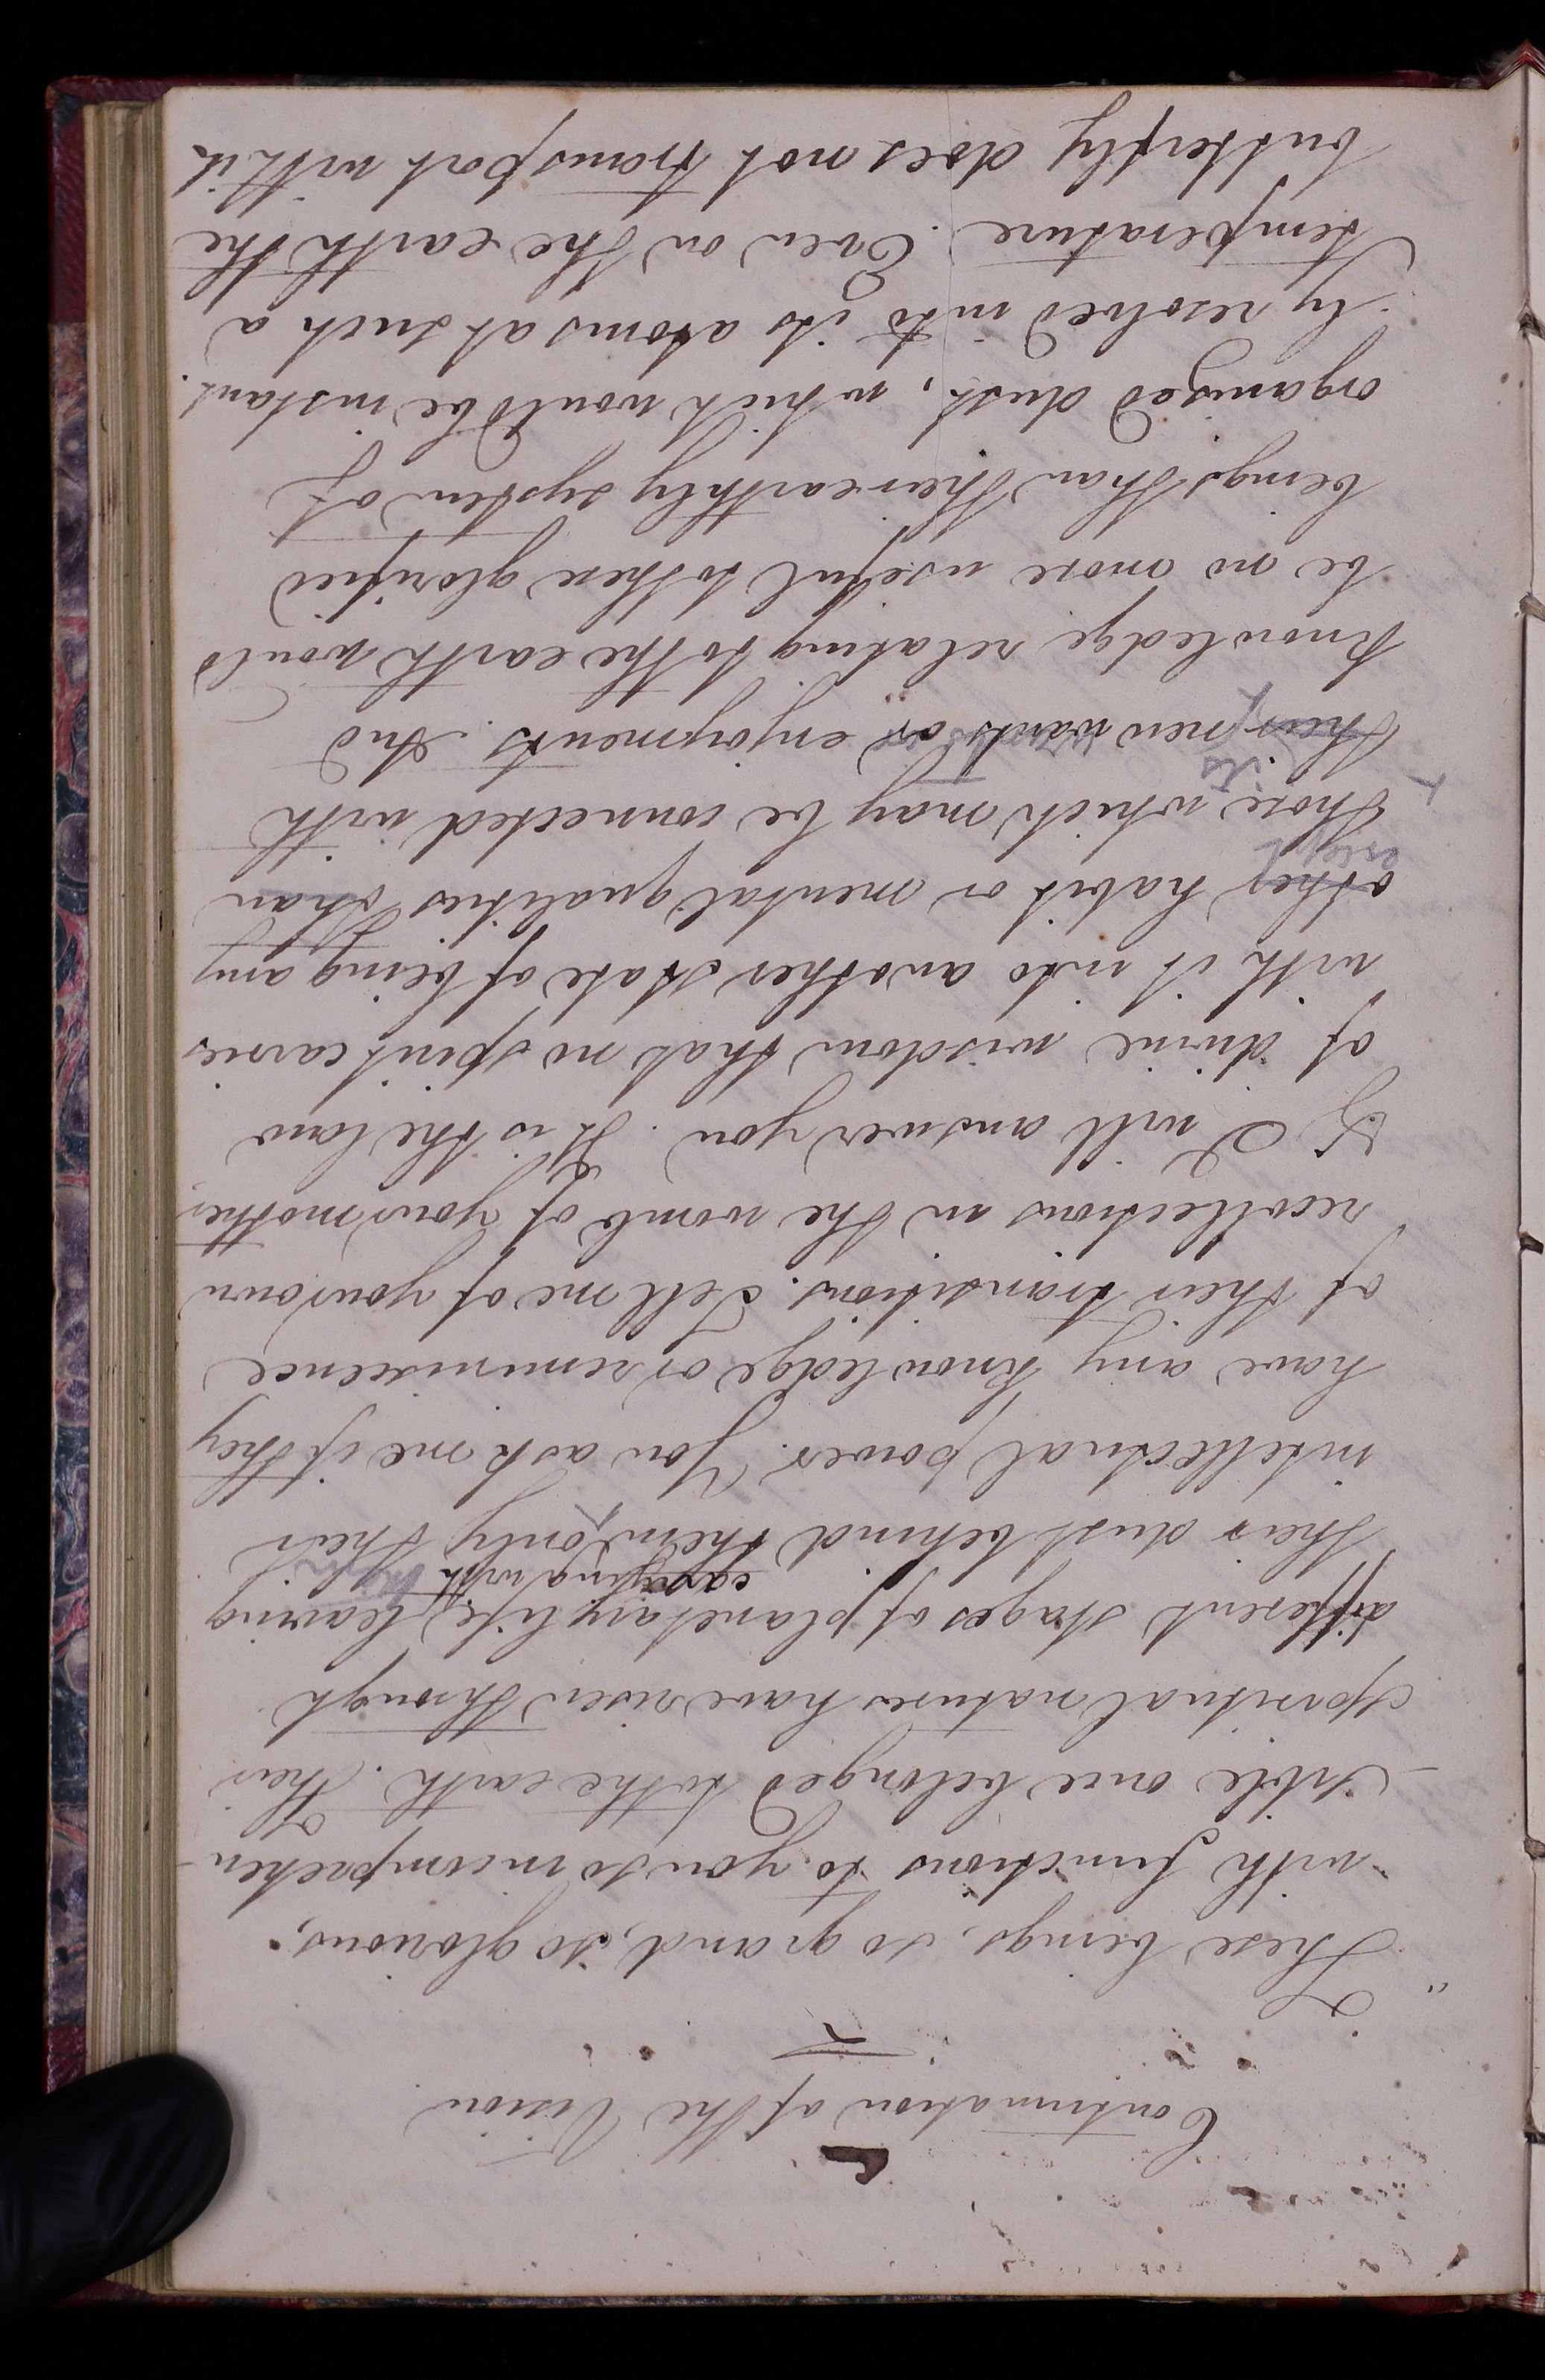 Continuation of the Vision
"These beings, so grand, so glorious,
with functions to you so incomprehen
-sible once belonged to the earth. Their
spiritual natures have risen through
different stages of planetary life, leaving
carrying with them
their dust behind them, only their
intellectual power. You ask me if they
have any knowledge or reminiscence
of their transitions. Tell me of your own
recollections in the womb of your mother,
& I will answer you. It is the law
of divine wisdom that no spirit carries
with it into another state of being any
other habit or mental qualities than
except
those which may be connected with
its
their new wants or enjoyments. And
knowledge relating to the earth would
be no more useful to these glorified
beings than their earthly system of
organised dust, which would be instant
-ly resolved into its atoms at such a
temperature. Even on the earth the
butterfly does not transport with it